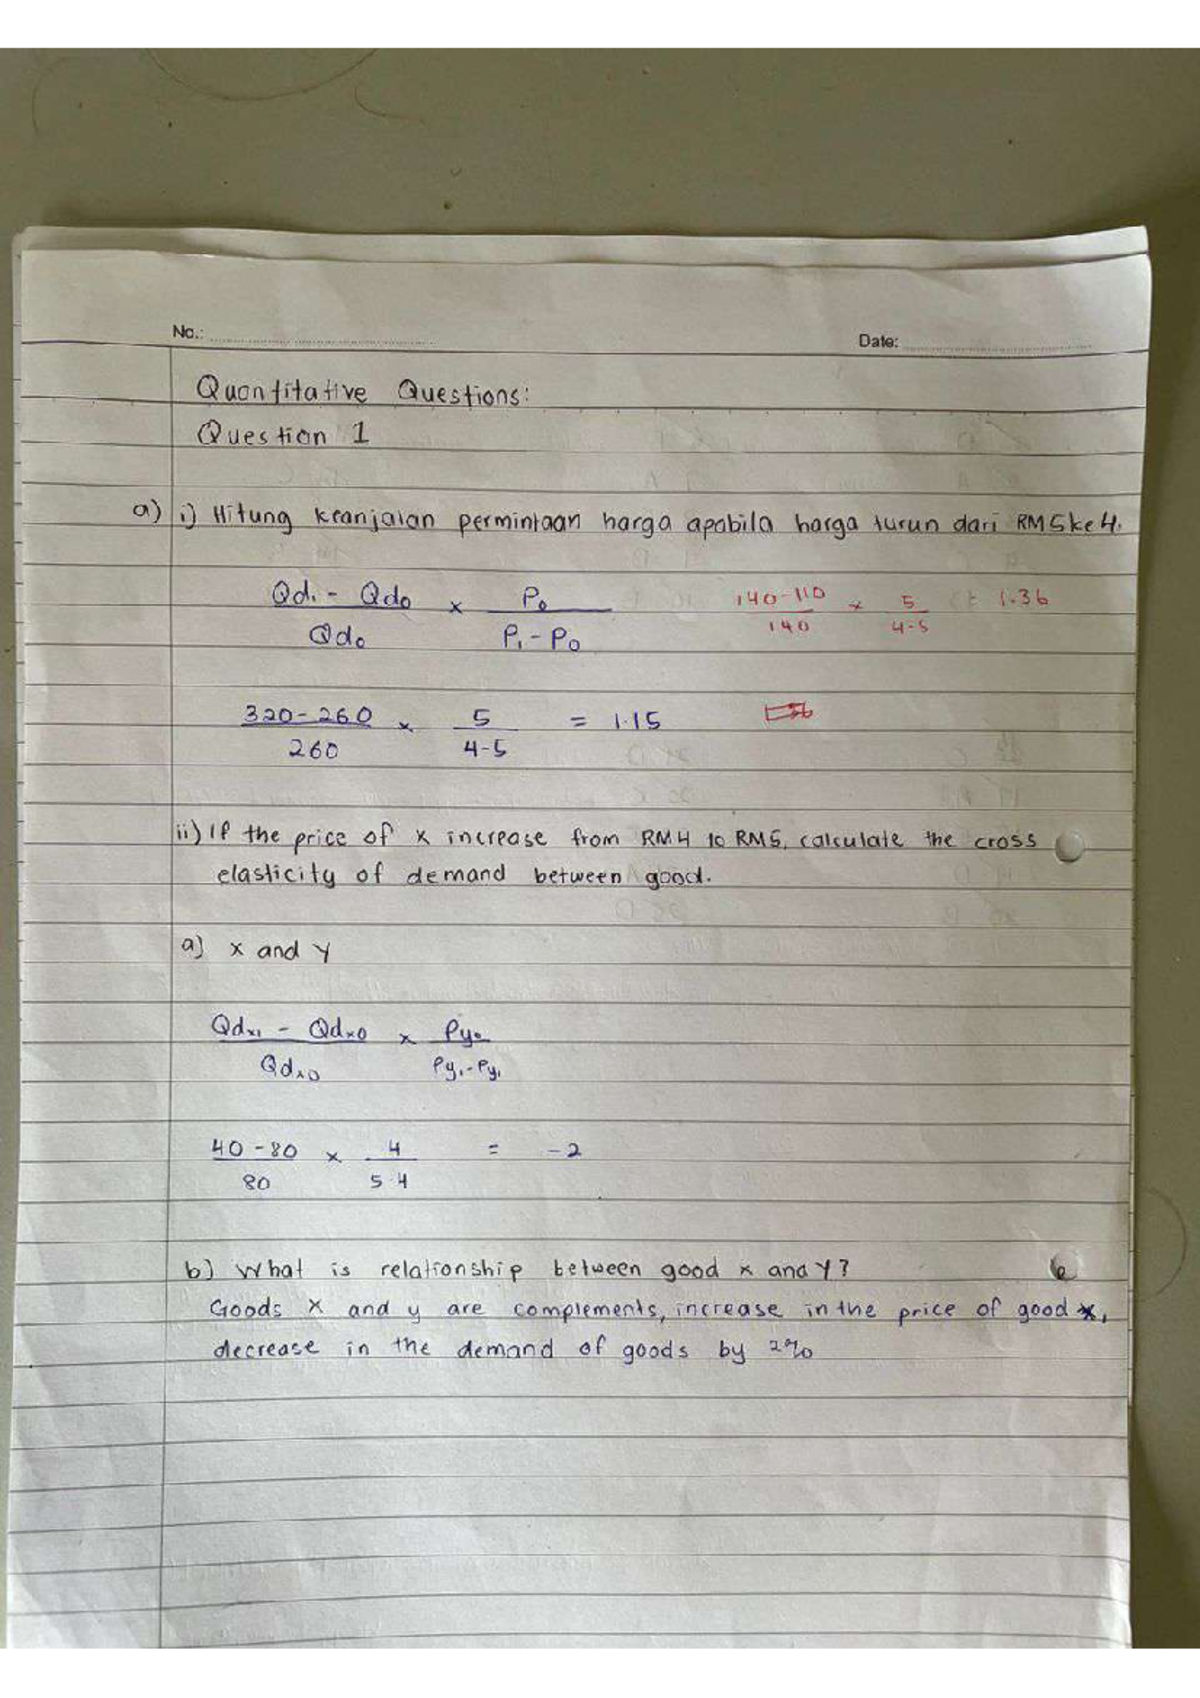 No.:
Date:
Quantitative Questions:
Question 1
a) i) Hitung keanjalan permintaan harga apabila harga turun dari RM5 ke 4.
Qd1 - Qd0 / Qd0 × P0 / P1 - P0
140-110 / 140 × 5 / 4-5 = 1.36
320-260 / 260 × 5 / 4-5 = 1.15
ii) If the price of x increase from RM4 to RM5, calculate the cross
elasticity of demand between good.
a) x and y
Qdx1 - Qdx0 / Qdx0 × Py0 / Py1-Py1
40-80 / 80 × 4 / 5-4 = -2
b) What is relationship between good x and Y?
Goods X and y are complements, increase in the price of good x,
decrease in the demand of goods by 2%